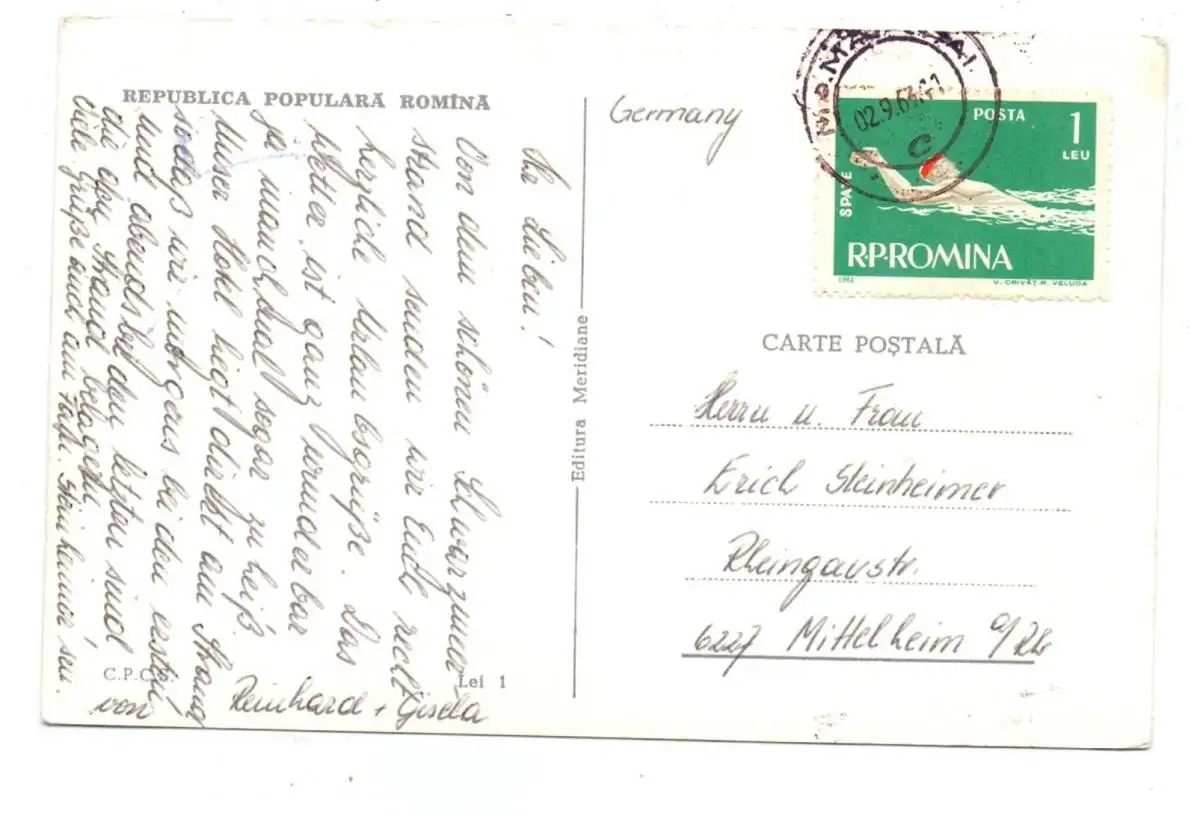 REPUBLICA POPULARĂ ROMÎNĂ
Ihr Lieben!
Von dem schönen Schwarzmeer
strand senden wir Euch recht
herzliche Urlaubsgrüße. Das
Wetter ist ganz wunderbar
ja manchmal sogar zu heiß.
Unser Hotel liegt direkt am Strand
sodaß wir morgens bei den ersten
und abends bei den letzten sind
die den Strand belagern.
Viele Grüße auch an Fam. Steinheimer sen.
von Reinhard + Gisela
C.P.C.
Lei 1
Editura Meridiane
Germany
02.9.63
C
POSTA
1
LEU
SPATE
R.P.ROMINA
1963
V. GRIVĂT-M. VELUDA
CARTE POȘTALĂ
Herrn u. Frau
Erich Steinheimer
Rheingaustr.
6227 Mittelheim a/Rh